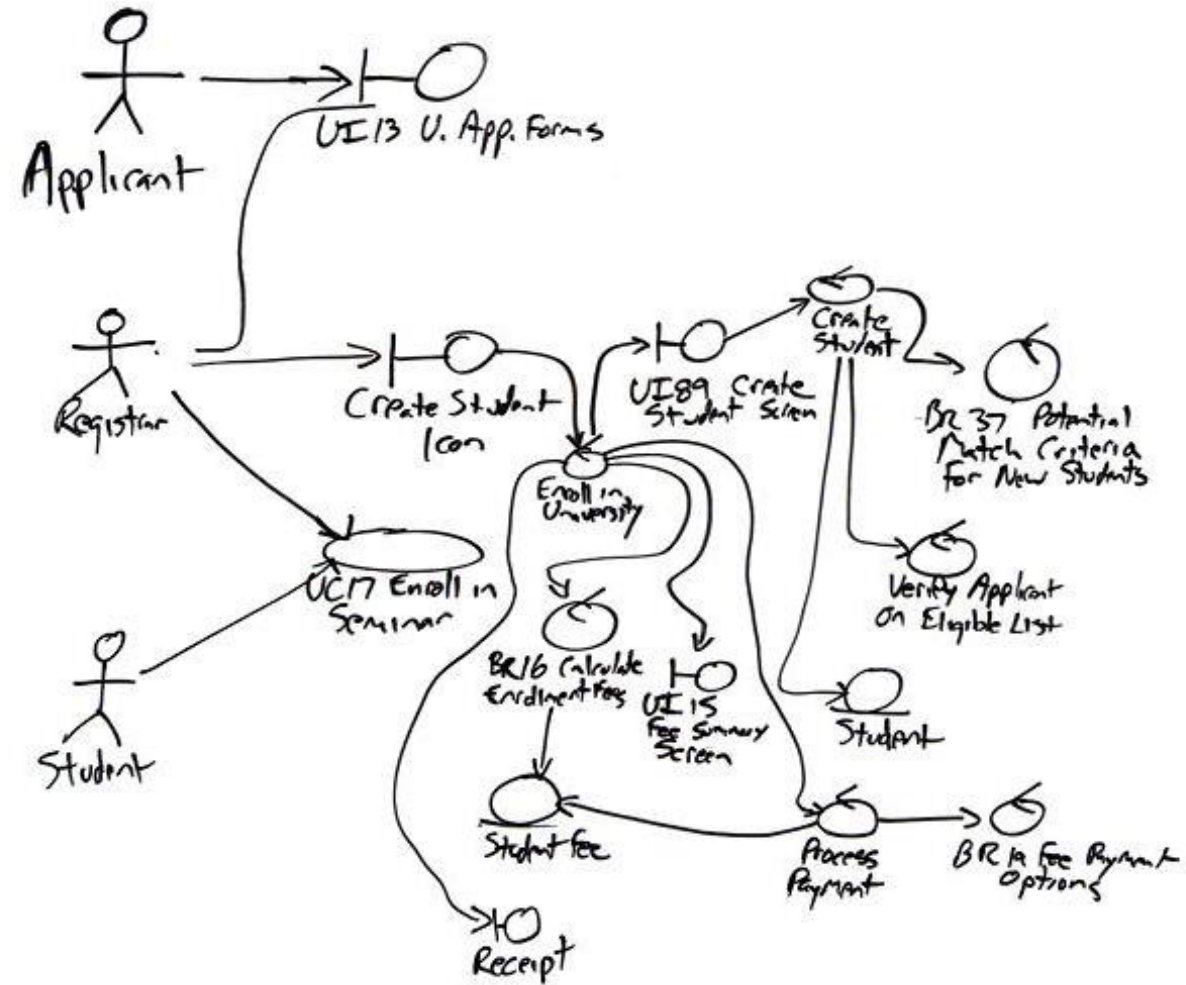 UI 13 U. App. Forms
Applicant
Create
Student
Registrar
Create Student
Icon
UI89 Create
Student Screen
BR 37 Potential
Match Criteria
for New Students
Enroll in
University
UC17 Enroll in
Seminar
Verify Applicant
On Eligible List
BR16 Calculate
Enrolment Fees
UI 15
Fee Summary
Screen
Student
Student
Student Fee
Process
Payment
Fee Payment
Options
Receipt